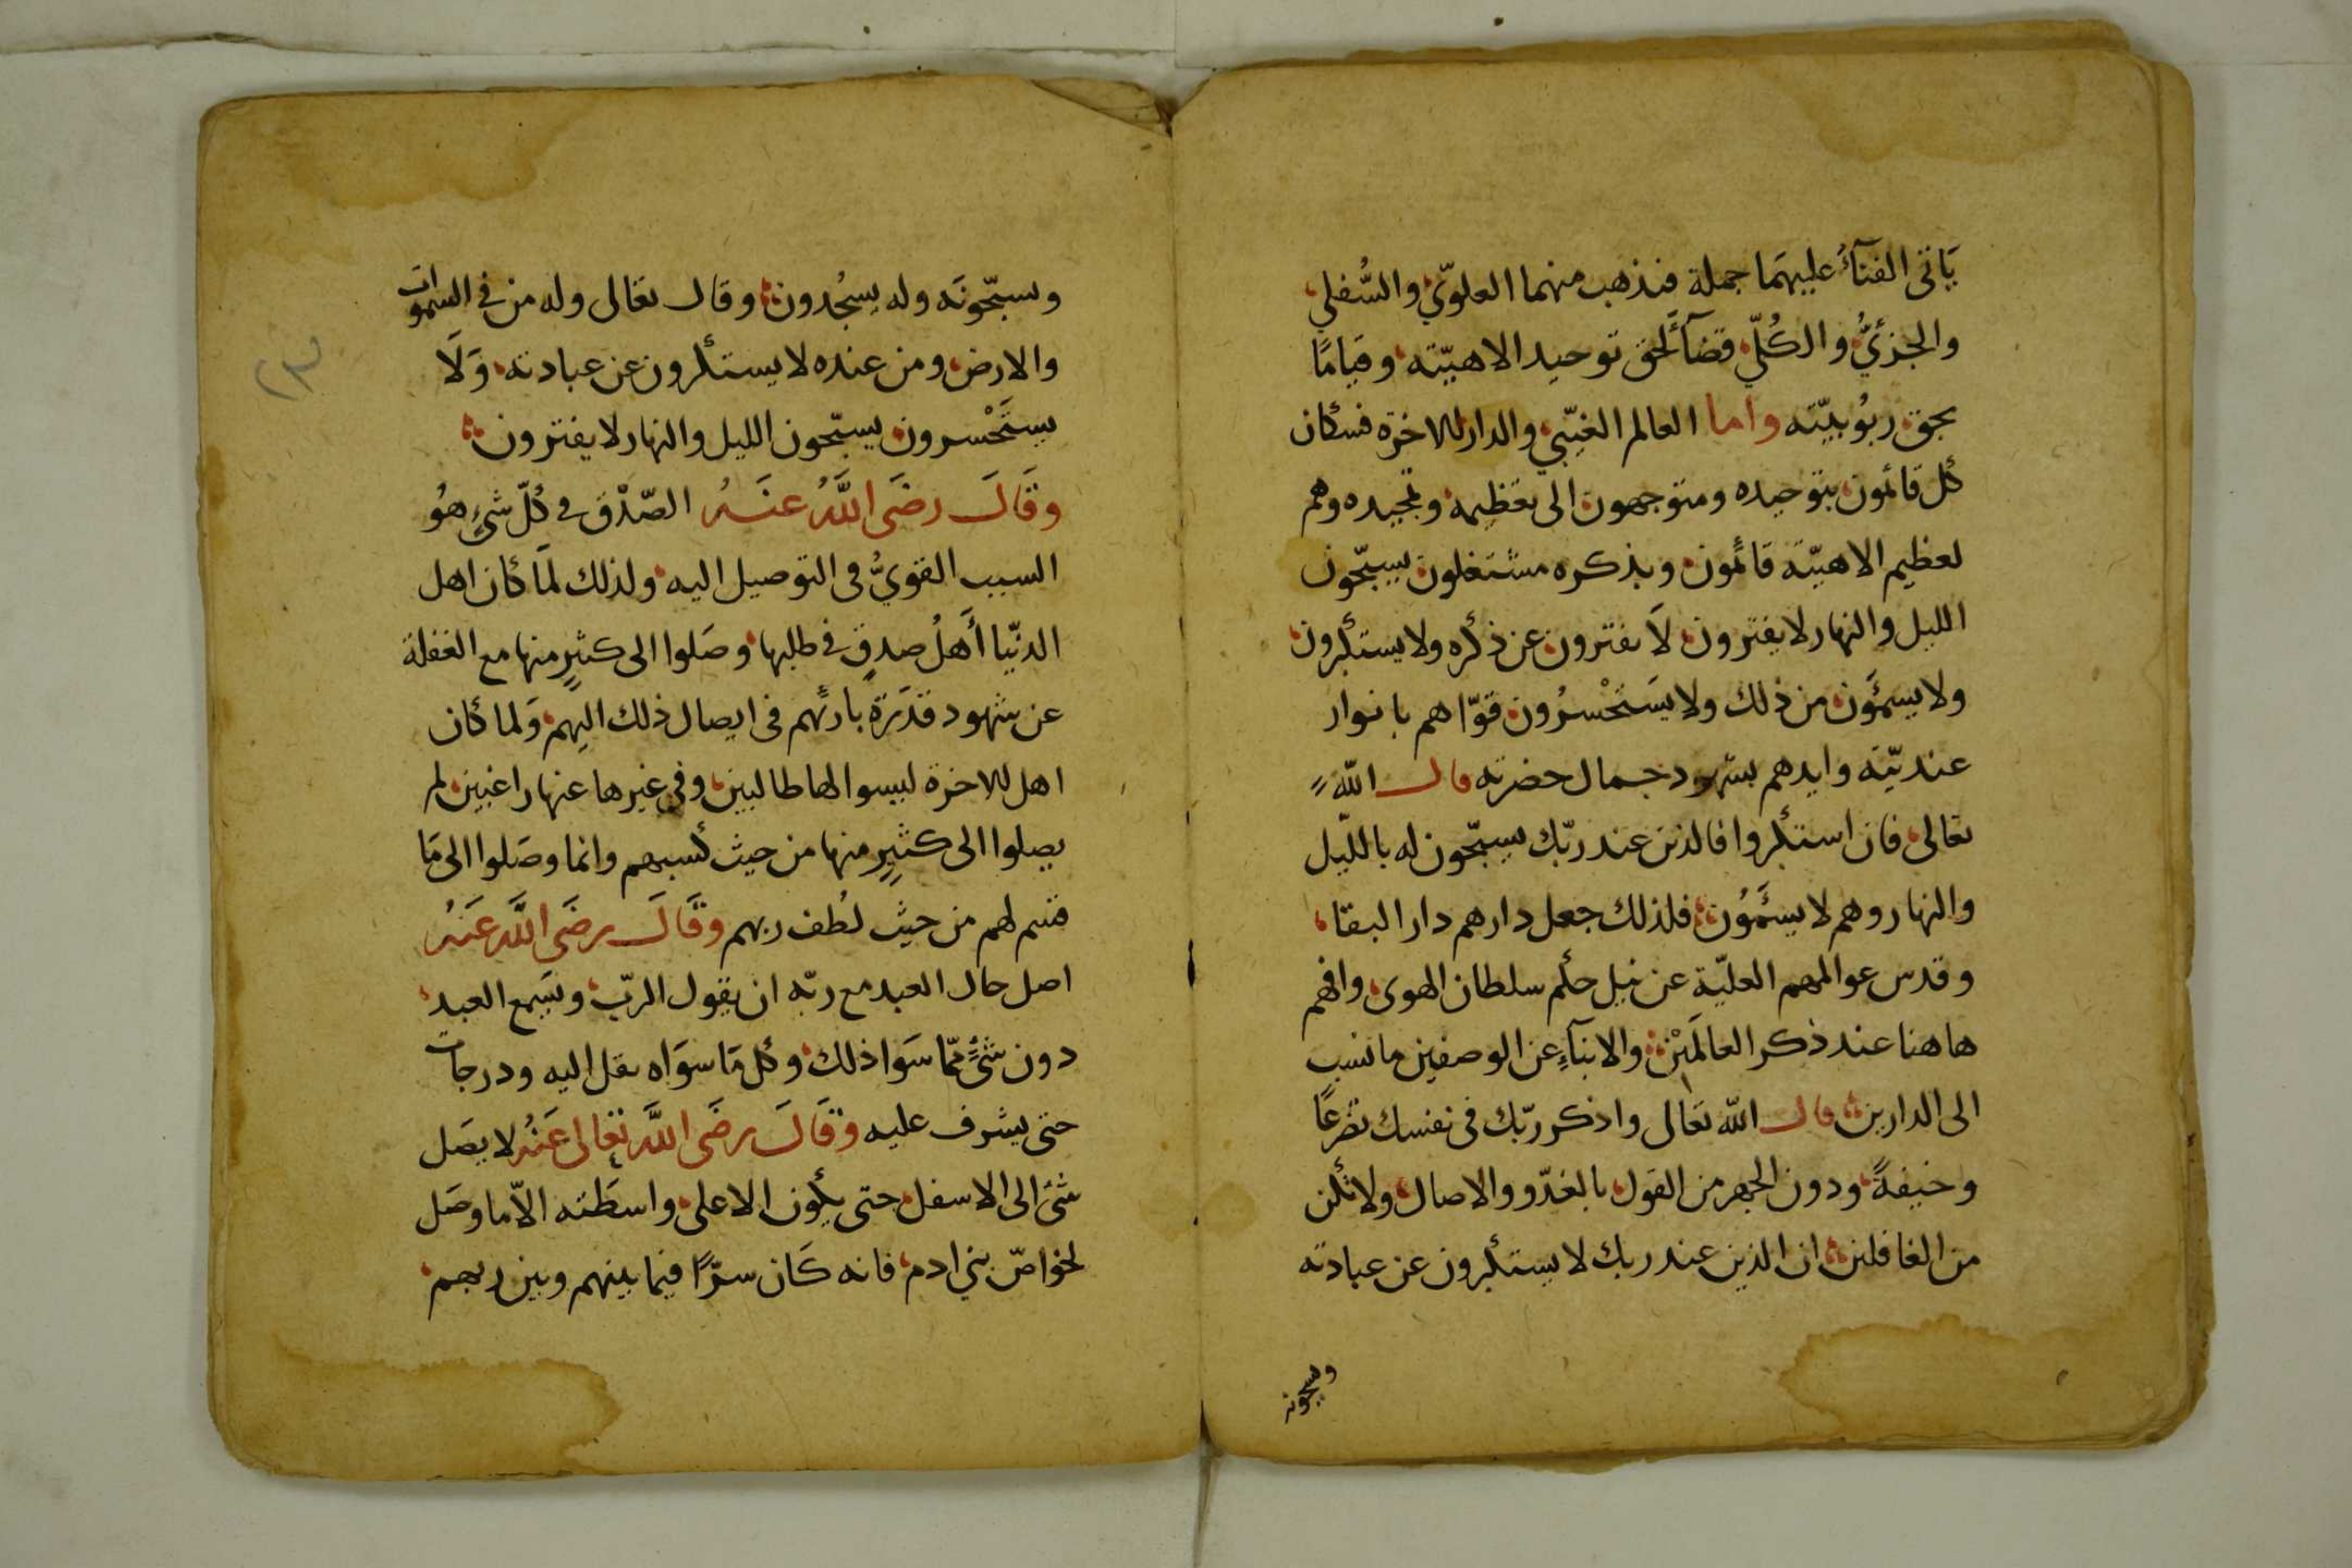 يَاتى الفنآءُ عليهمَا جملة فنذهب منهما العلوّي والسُّفلي
والجزئيُّ والكُلّي قضآءً لحق توحيد الاهيّته وقيامًا
بحق ربُوبيّته واما العالم الغيّبي والدار الاخرة فسكان
كل قائمون بتوحيده ومتوجهون الى تعظيمه وتمجيده وهم
لعظيم الاهيّته قائمون وبذكره مشتغلون يسبّحون
الليل والنهار لا يفترون لاَ يفترون عن ذكره ولا يستكبرون
ولا يسمؤن من ذلك ولا يَستَحْسرُون قوّاهم بانوار
عنديّته وايدهم بشهود جمال حضرته قال اللّه
تعالى فان استكبروا فالذين عند ربّك يسبّحون له بالليل
والنهار وهم لا يسئمَوُن فلذلك جعل دارهم دار البقا
وقدس عوالمهم العليّة عن نيل حكم سلطان الهوى وافهم
هاهنا عند ذكر العالمَيْن والانبآءِ عن الوصفين ما نسب
الى الدارين قال اللّه تعَالى واذكر ربّك فى نفسك تضرعًا
وخيفةً ودون الجهر من القول بالغدّو والاصال ولا تكن
من الغافلين ان الذين عند ربك لا يستكبرون عن عبادته
ويسبحونه
ويسبّحونَه وله يسجُدون وقال تعالى وله من في السموات
والارض ومن عنده لا يستكبرون عن عبادته وَلَا
يستَحْسرون يسبّحون الليل والنهار لا يفترون
وَقَالَ رضَى اللَّهُ عنَهُ الصّدْق في كُلّ شئٍ هوُ
السبب القويُّ فى التوصيل اليه ولذلك لمَا كان اهل
الدنّيا أَهلُ صدقٍ في طلبها وصَلوا الى كثيرٍ منها مع الغفلة
عن شهود قدَرَة بارئهم فى ايصال ذلك اليهم وَلما كان
اهل الاخرة ليسوا لها طالبين وفى غيرها عنها راغبين لم
يصلوا الى كثيرٍ منها من حيث كسبهم وانما وصَلوا الى مَا
قسم لهم من حيث لطُف ربهم وَقَالَ رضَى اللَّه عَنهُ
اصل حال العبد مع ربّه ان يقول الربّ ويسَمع العبد
دون شئٍ ممّا سَوَا ذلك وكل مَا سوَاه نقل اليه ودرجات
حتى يشرف عليه وَقَالَ رضَى اللَّه تعَالى عَنُه لا يصَل
شئ الى الاسفل حتى يكون الاعلى واسطَته الاّ ما وصَل
لخواصّ بني ادم فانه كَان سرًّا فيما بينهم وبين ربهم